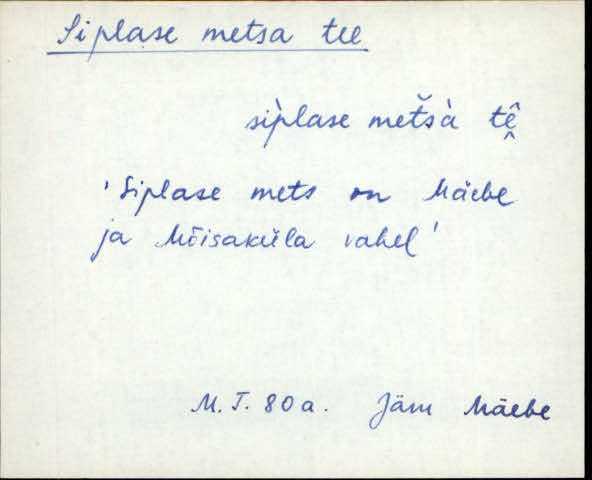 Siplase metsa tee
sìplase metšà tḙ̂
'Siplase mets on Mäebe
ja Mõisaküla vahel'
M. T. 80 a. Jäm Mäebe